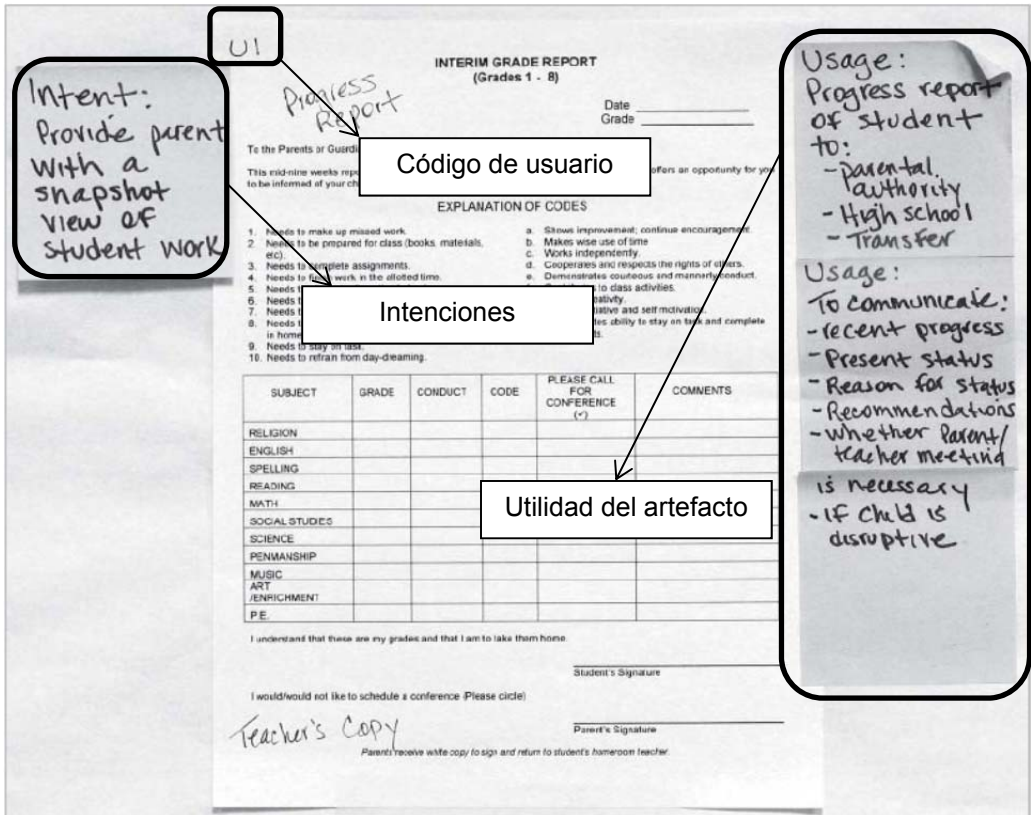 U1
Intent:
Provide parent
with a
snapshot
view of
student work
Progress
Report
INTERIM GRADE REPORT
(Grades 1 - 8)
Date
Grade
To the Parents or Guardi
This mid-nine weeks repo
offers an opportunity for you
to be informed of your ch
Código de usuario
EXPLANATION OF CODES
1. Needs to make up missed work.
2. Needs to be prepared for class (books, materials,
etc).
3. Needs to complete assignments.
4. Needs to finish work in the allotted time.
5. Needs t
6. Needs t
7. Needs t
8. Needs t
in home
9. Needs to stay on task.
10. Needs to refrain from day-dreaming.
a. Shows improvement; continue encouragement.
b. Makes wise use of time
c. Works independently.
d. Cooperates and respects the rights of others.
e. Demonstrates courteous and mannerly conduct.
to class activities.
eativity.
itiative and self motivation.
tes ability to stay on task and complete
ts.
Intenciones
SUBJECT GRADE CONDUCT CODE PLEASE CALL FOR CONFERENCE (✓) COMMENTS
RELIGION
ENGLISH
SPELLING
READING
MATH
SOCIAL STUDIES
SCIENCE
PENMANSHIP
MUSIC
ART
/ENRICHMENT
P.E.
Utilidad del artefacto
I understand that these are my grades and that I am to take them home.
Student's Signature
I would/would not like to schedule a conference (Please circle)
Teacher's Copy
Parent's Signature
Parents receive white copy to sign and return to student's homeroom teacher.
Usage:
Progress report
of student
to:
- parental
authority
- High school
- Transfer
Usage:
To communicate:
- recent progress
- Present status
- Reason for status
- Recommendations
- whether Parent/
teacher meeting
is necessary
- if Child is
disruptive